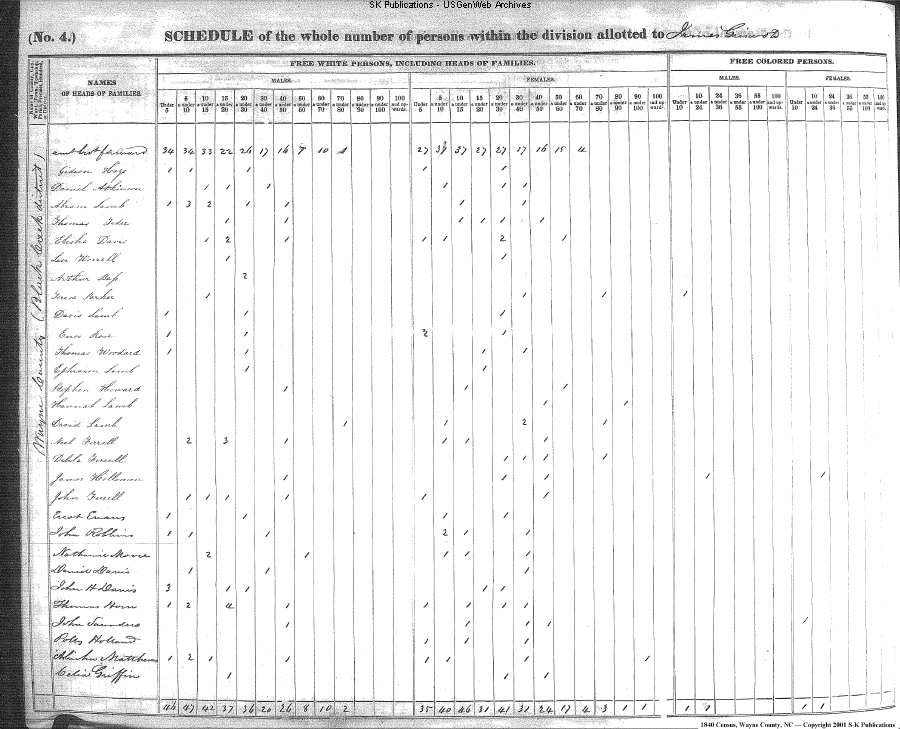 SK Publications - USGenWeb Archives
(No. 4.) SCHEDULE of the whole number of persons within the division allotted to James
FREE WHITE PERSONS, INCLUDING HEADS OF FAMILIES. FREE COLORED PERSONS.
NAMES OF HEADS OF FAMILIES. MALES. FEMALES. MALES. FEMALES.
Under 5 5 & under 10 10 & under 15 15 & under 20 20 & under 30 30 & under 40 40 & under 50 50 & under 60 60 & under 70 70 & under 80 80 & under 90 90 & under 100 100 and upwards. Under 5 5 & under 10 10 & under 15 15 & under 20 20 & under 30 30 & under 40 40 & under 50 50 & under 60 60 & under 70 70 & under 80 80 & under 90 90 & under 100 100 and upwards. Under 10 10 & under 24 24 & under 36 36 & under 55 55 & under 100 100 and upwards. Under 10 10 & under 24 24 & under 36 36 & under 55 55 & under 100 100 and upward.
Wayne County (Black Creek district)
amt brot forward 34 34 33 22 26 17 16 7 10 1 27 37 27 27 17 16 15 4
Gideon Hays 1 1 1 1 1
Daniel Atkinson 1 1 1 1 1 1
Abram Lamb 1 3 2 1 1 1 1
Thomas 1 1 1 1 1 1
Elisha Davis 1 2 1 1 1 2 1
Levi Worrell 1 1
Arthur 2
Parker 1 1 1 1
Davis Lamb 1 1 1
Enos Rose 1 1 2 1
Thomas Woodard 1 1 1 1
Ephraim Lamb 1 1
Stephen Howard 1 1 1
Hannah Lamb 1 1
David Lamb 1 1 2 1
Noel Ferrell 2 3 1 1 1 1
Delila Ferrell 1 1 1 1
James Holloman 1 1 1 1 1
John Ferrell 1 1 1 1 1 1
Evans 1 1 1 1
John Robbins 1 1 1 2 1 1
Nathaniel Moore 2 1 1 1 1
Daniel Davis 1 1 1
John H Davis 3 1 1 1 1
Thomas Horn 1 2 4 1 1 1 1 1
John Saunders 1 1 1 1 1
Polly Holland 1 1 1
Matthews 1 2 1 1 1 1 1 1
Celia Griffin 1 1 1
46 47 42 37 36 20 26 8 10 2 35 40 46 31 41 31 24 17 4 3 1 1 1 1 1 1
1840 Census, Wayne County, NC — Copyright 2001 S-K Publications